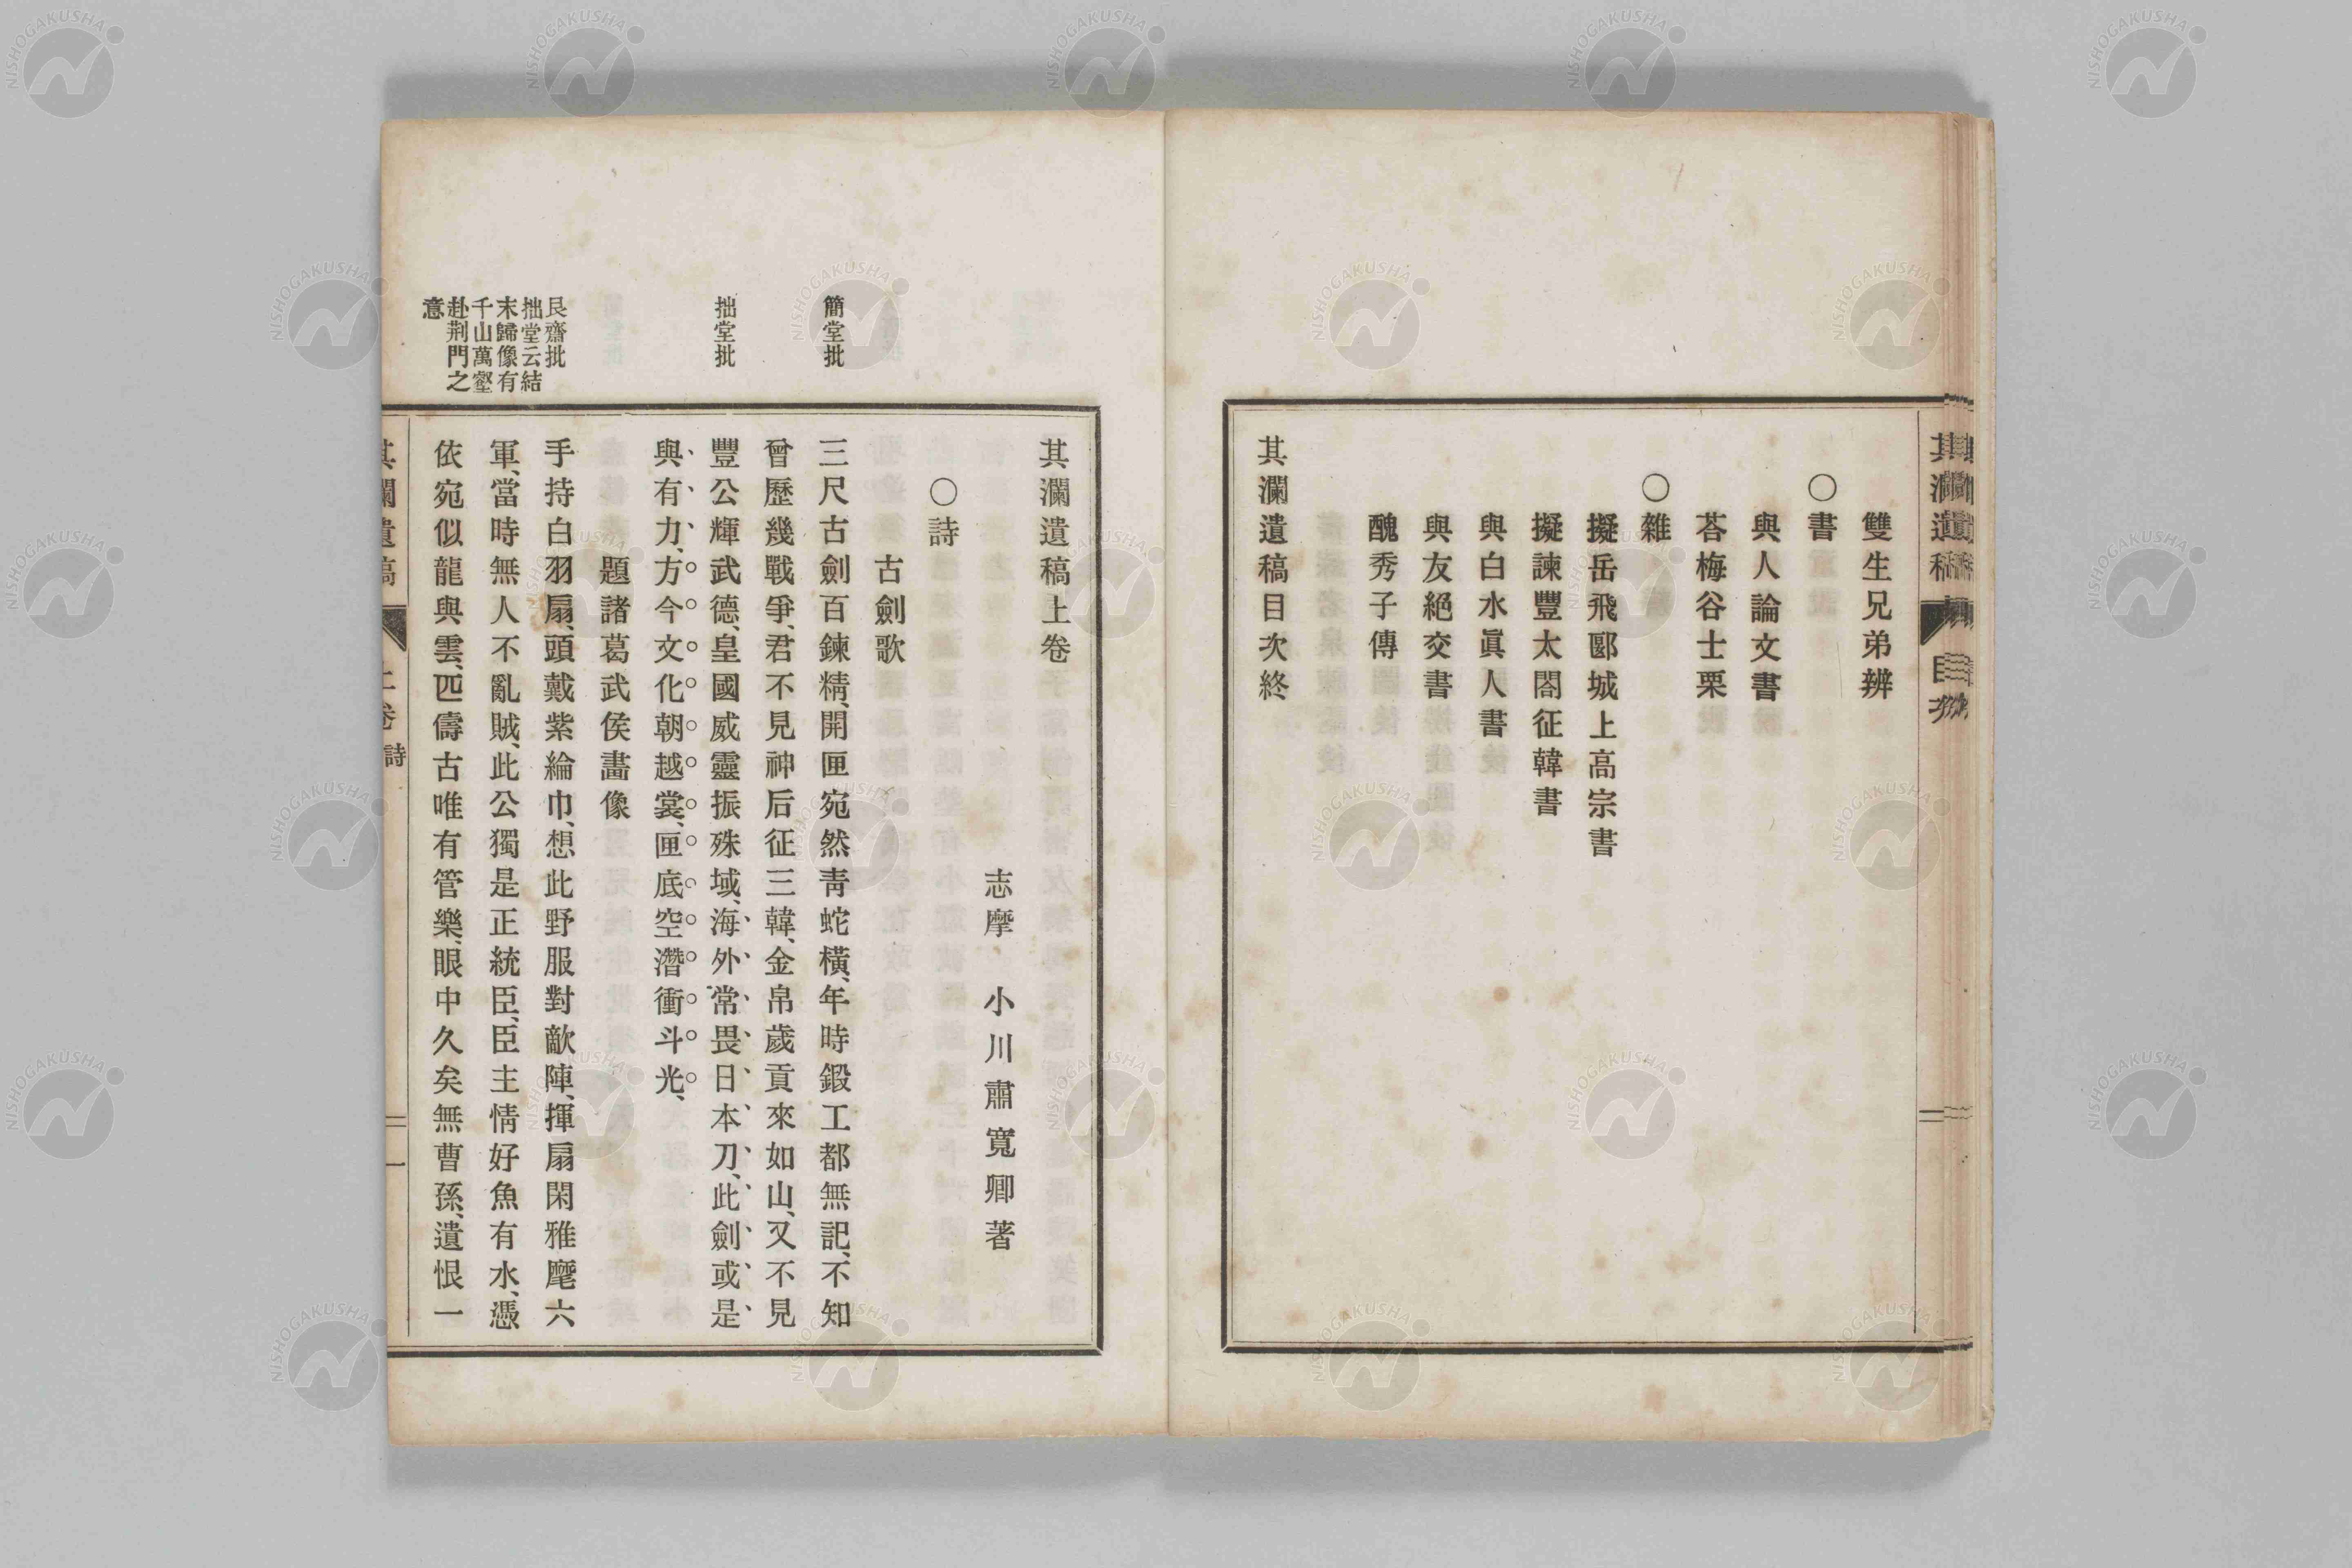 雙生兄弟辨
〇書
與人論文書
荅梅谷士栗
〇雜
擬岳飛郾城上高宗書
擬諫豐太閤征韓書
與白水眞人書
與友絕交書
醜秀子傳
其瀾遺稿目次終
其瀾遺稿上卷
志摩 小川肅寬卿著
〇詩
古劍歌
簡堂批
三尺古劍百鍊精、開匣宛然靑蛇橫、年時鍛工都無記、不知
曾歷幾戰爭、君不見神后征三韓、金帛歲貢來如山、又不見
拙堂批
豐公輝武德、皇國威靈振殊域、海外常畏日本刀、此劍或是
與有力、方今文化朝越裳、匣底空潛衝斗光、
題諸葛武侯畵像
艮齋批
拙堂云結
末歸像有
千山萬壑
赴荆門之
意
手持白羽扇、頭戴紫綸巾、想此野服對敵陣、揮扇閑雅麾六
軍、當時無人不亂賊、此公獨是正統臣、臣主情好魚有水、憑
依宛似龍與雲、匹儔古唯有管樂、眼中久矣無曹孫、遺恨一
其瀾遺稿 上卷 詩 一
NISHOGAKUSHA